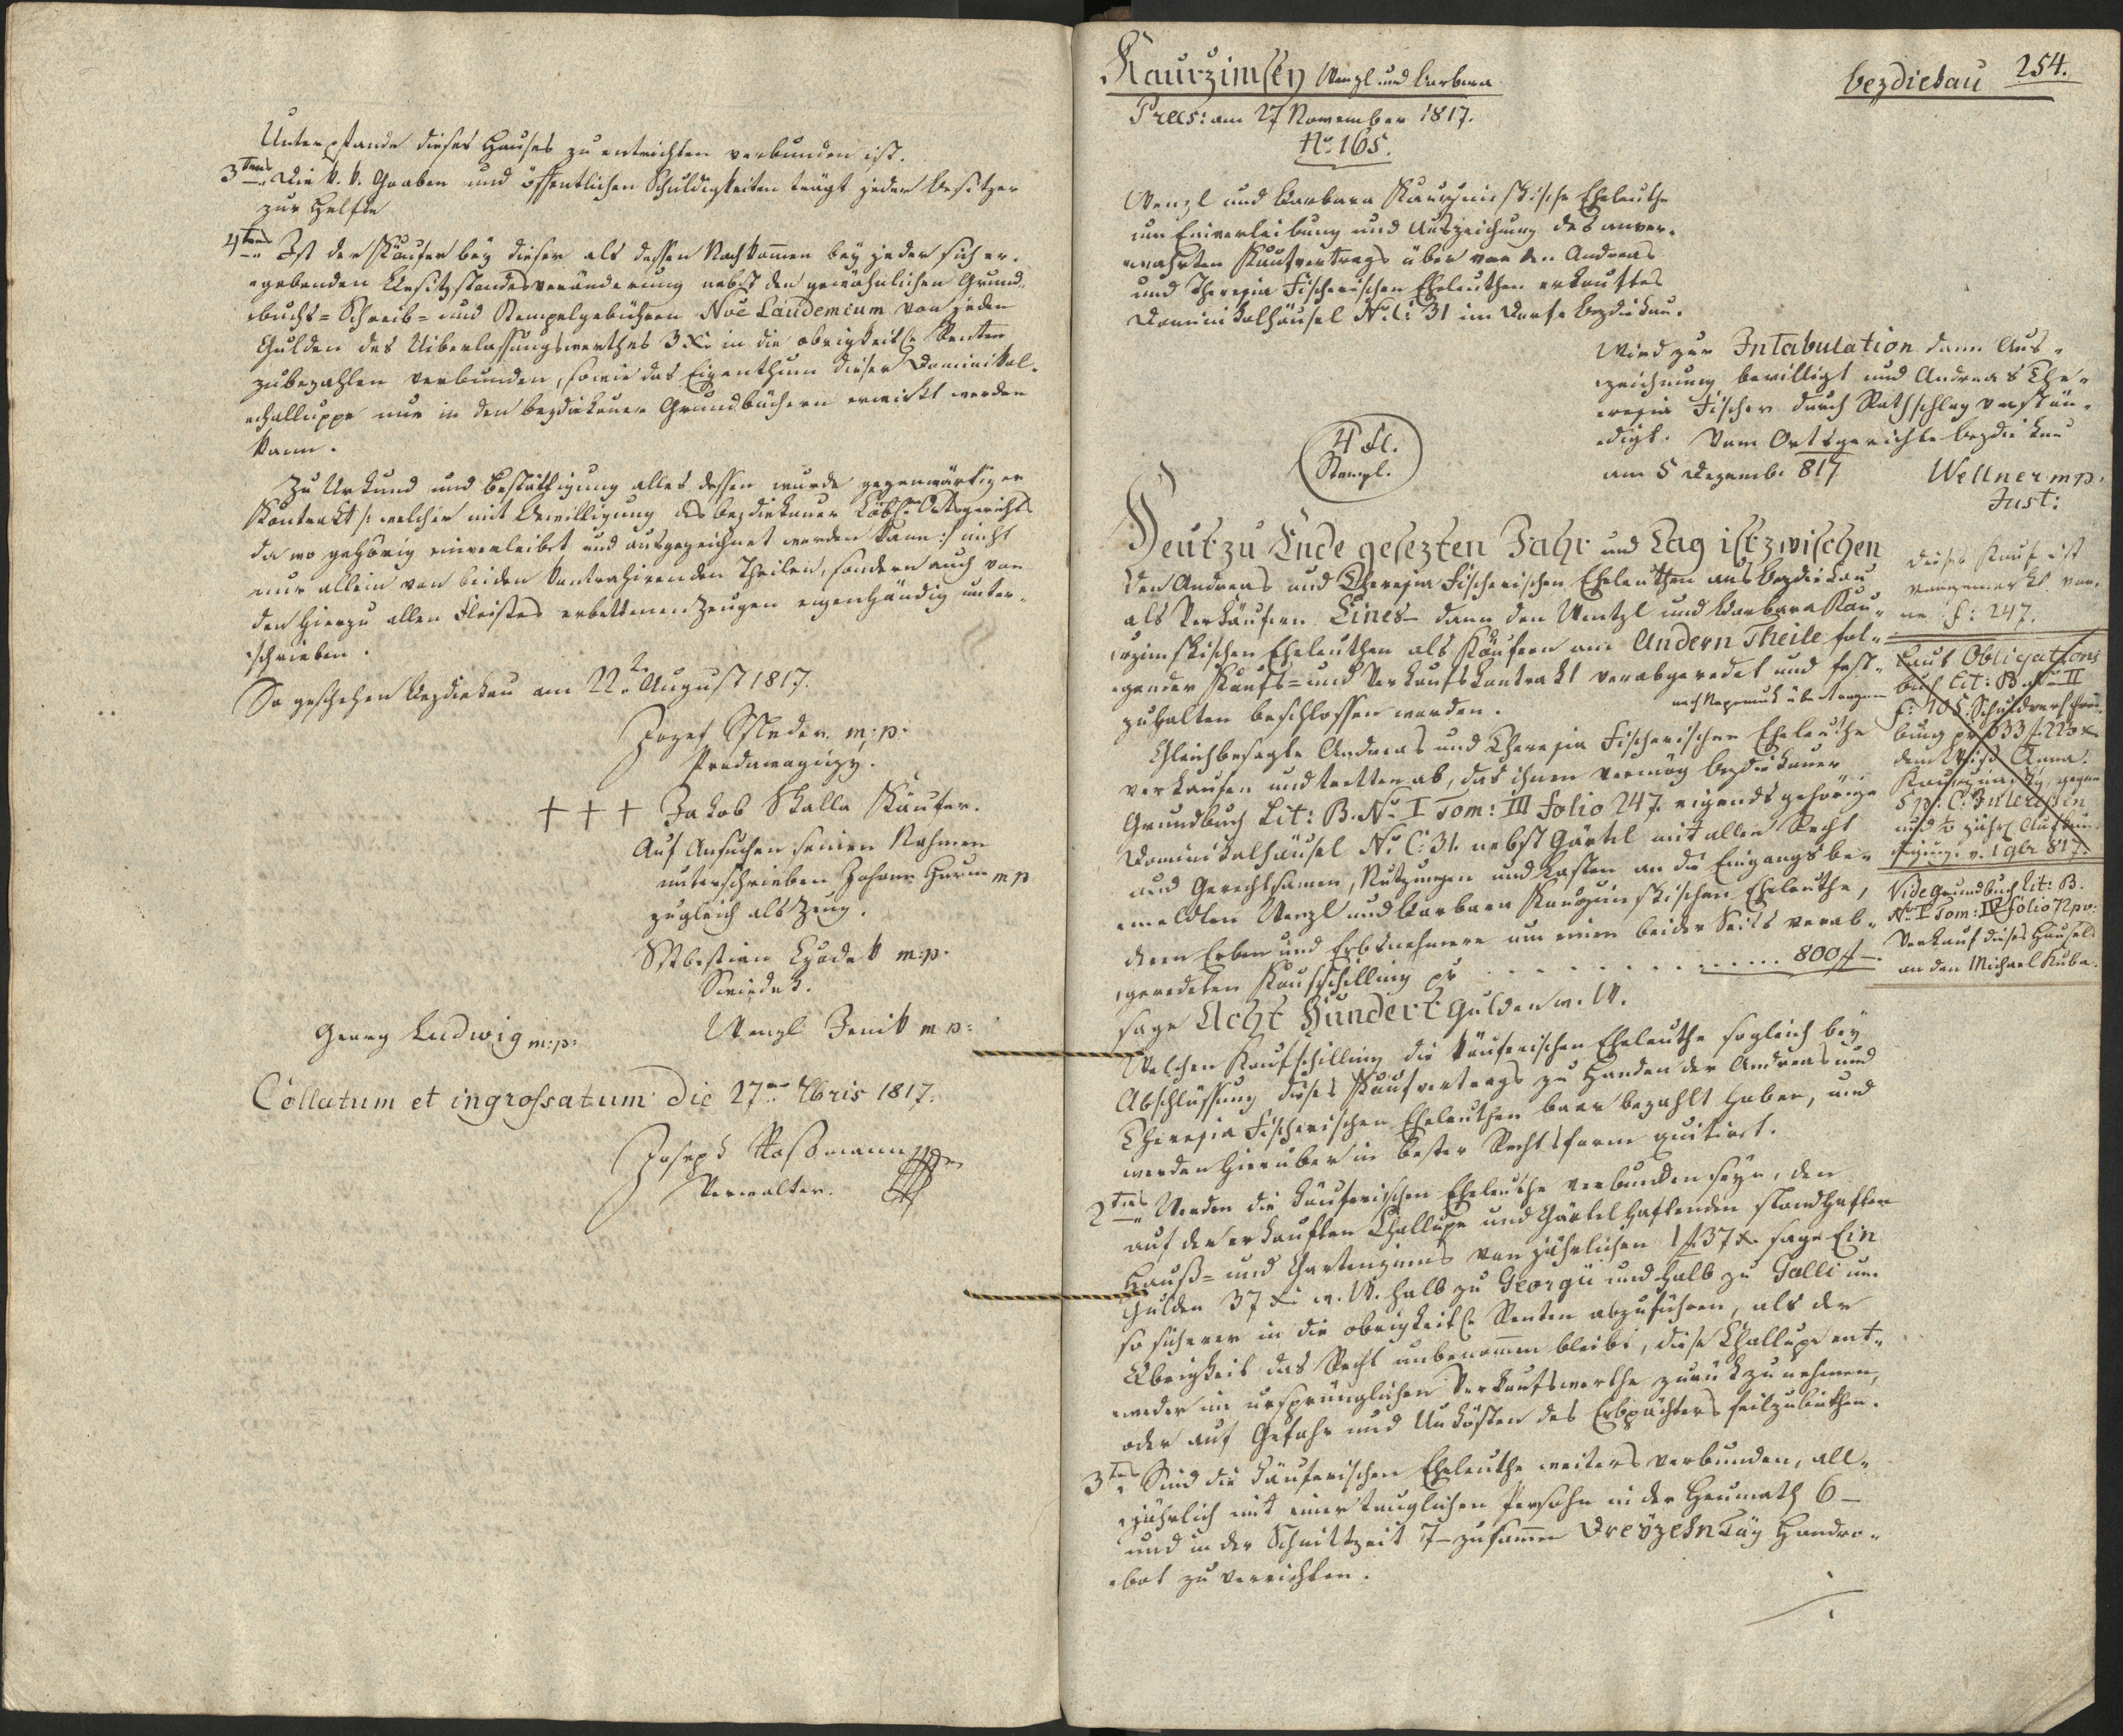 Unterpfande dieses Hauses zu entrichten verbunden ist.
3tens Die k. k. Gaaben und öffentlichen Schuldigkeiten trägt jeder Besitzer
zur Helfte
4tens Ist der Käufer bey dieser als dessen Nachkom̄en bey jeder sich er„
„gebenden Besitzstandesveränderung nebst den gewöhnlichen Grund„
„buchs= Schreib= und Stempelgebühren Noe Laudemium von jeden
Gulden des Uiberlassungswerthes 3 Xr in die obrigkeitl: Renten
zubezahlen verbunden, sowie das Eigenthum dieser Dominikal„
„challuppe nur in den bezdiekauer Grundbüchern erwirkt werden
kann.
Zu Urkund und Bestättigung alles dessen wurde gegenwärtiger
Kontrakt /: welcher mit Bewilligung des bezdiekauer Löbl: Ortsgerichts
da wo gehörig einverleibet und ausgezeichnet werden kann :/ nicht
nur allein von beiden kontrahirenden Theilen, sondern auch von
den hierzu allen Fleißes erbettenen Zeugen eigenhändig unter„
„schrieben.
So geschehen Bezdiekau am 22t. August 1817.
Jozef m: p.
+ + + Jakob Skalla Käufer.
Auf Ansuchen seinen Nahmen
unterschrieben Johann m p
zugleich als Zeug.
m: p.
Georg Ludwig m: p:
Wenzl Jenik m p:
Collatum et ingrossatum die 27ma 9bris 1817.
Joseph Roßmann mp
Verwalter.
Kaurzimsky Wenzl und Barbara
bezdiekau 254.
Præs: am 27 November 1817.
No. 165.
Wenzl und Barbara Kaurzimskische Eheleuthe
um Einverleibung und Auszeichnung des anver„
„wahrten Kaufvertrags über von den Andreas
und Theresia Fischerischen Eheleuthen erkauftes
Dominikalhäusel No. C: 31 im Dorfe bezdiekau.
Wird zur Intabulation dann Aus„
„zeichnung bewilligt und Andreas The„
„resia Fischer durch Rathschlag verstän„
„digt. Vom Ortsgerichte bezdiekau
am 5 Dezemb. 817
Wellner mp.
Just:
4 fl.
Stempl.
Heut zu Ende gesezten Jahr und Tag ist zwischen
den Andreas und Theresia Fischerischen Eheleuthen aus bezdiekau
als Verkäufern Eines– dann den Wentzl und Barbara Kau„
„rzimskischen Eheleuthen als Käufern am Andern Theile fol„
„gender Kaufs= und Verkaufskontrakt verabgeredet und fest„
zuhalten beschlossen worden.
nach übertragen
Gleichbesagte Andreas und Theresia Fischerischen Eheleuthe
verkaufen und tretten ab, das ihnen vermög bezdiekauer
Grundbuch Lit: B. No. I Tom: III folio 247. eigends gehörige
Dominikalhäusel No C: 31. nebst Gärtel mit allen Recht
und Gerechtsamen, Nutzungen und Lasten an die Eingangs be„
„meldten Wenzl und Barbara Kaurzimskischen Eheleuthe,
deren Erben und Erbsnehmere um einen beider Seits verab„
„geredeten Kaufschilling pr . . . . . . . . . . . . . 800 fl –.
sage Acht Hundert Gulden w. W.
Welchen Kaufschilling die käuferischen Eheleuthe sogleich bey
Abschlüssung dieses Kaufvertrags zu Handen der Andreas und
Theresia Fischerischen Eheleuthen baar bezahlt haben, und
werden hierüber in bester Rechtsform quitiret.
2tens Werden die Käuferischen Eheleuthe verbunden seyn, den
auf der erkauften Challupe und Gärtel haftenden standhaften
Hauß= und Gartenzinns von jährlichen 1 f 37 x. sage Ein
Gulden 37 Xr w. W. halb zu Georgii und halb zu Galli um
so sicherer in die obrigkeitl: Renten abzuführen, als der
Obrigkeit das Recht unbenom̄en bleibe, diese Challupe ent„
„weder im ursprünglichen Verkaufswerthe zurückzunehmen,
oder auf Gefahr und Unkösten des Erbpächters feilzubiethen.
3tens Sind die Käuferischen Eheleuthe weiters verbunden, all„
„jährlich mit einer tauglichen Persohn in der Heumath 6–
und in der Schnittzeit 7– zusam̄en Dreyzehn Täg Handro„
„bot zu verrichten.
dieser Kauf ist
vorgemerkt vor„
ne f: 247.
Laut Obligations
buch Lit: B. No II
f: 105. Schuldverschrei„
bung pr 533 f. 22 3 x
dem Anna
Kaurzimsky gegen
5 p: C: Interessen
und ½ jährl Aufkün„
digung. v. 1 9br 817.
Vide Grundbuch Lit: B.
No I Tom: IV folio 72 pv:
Verkauf dieses Häusels
an den Michael Kuba.